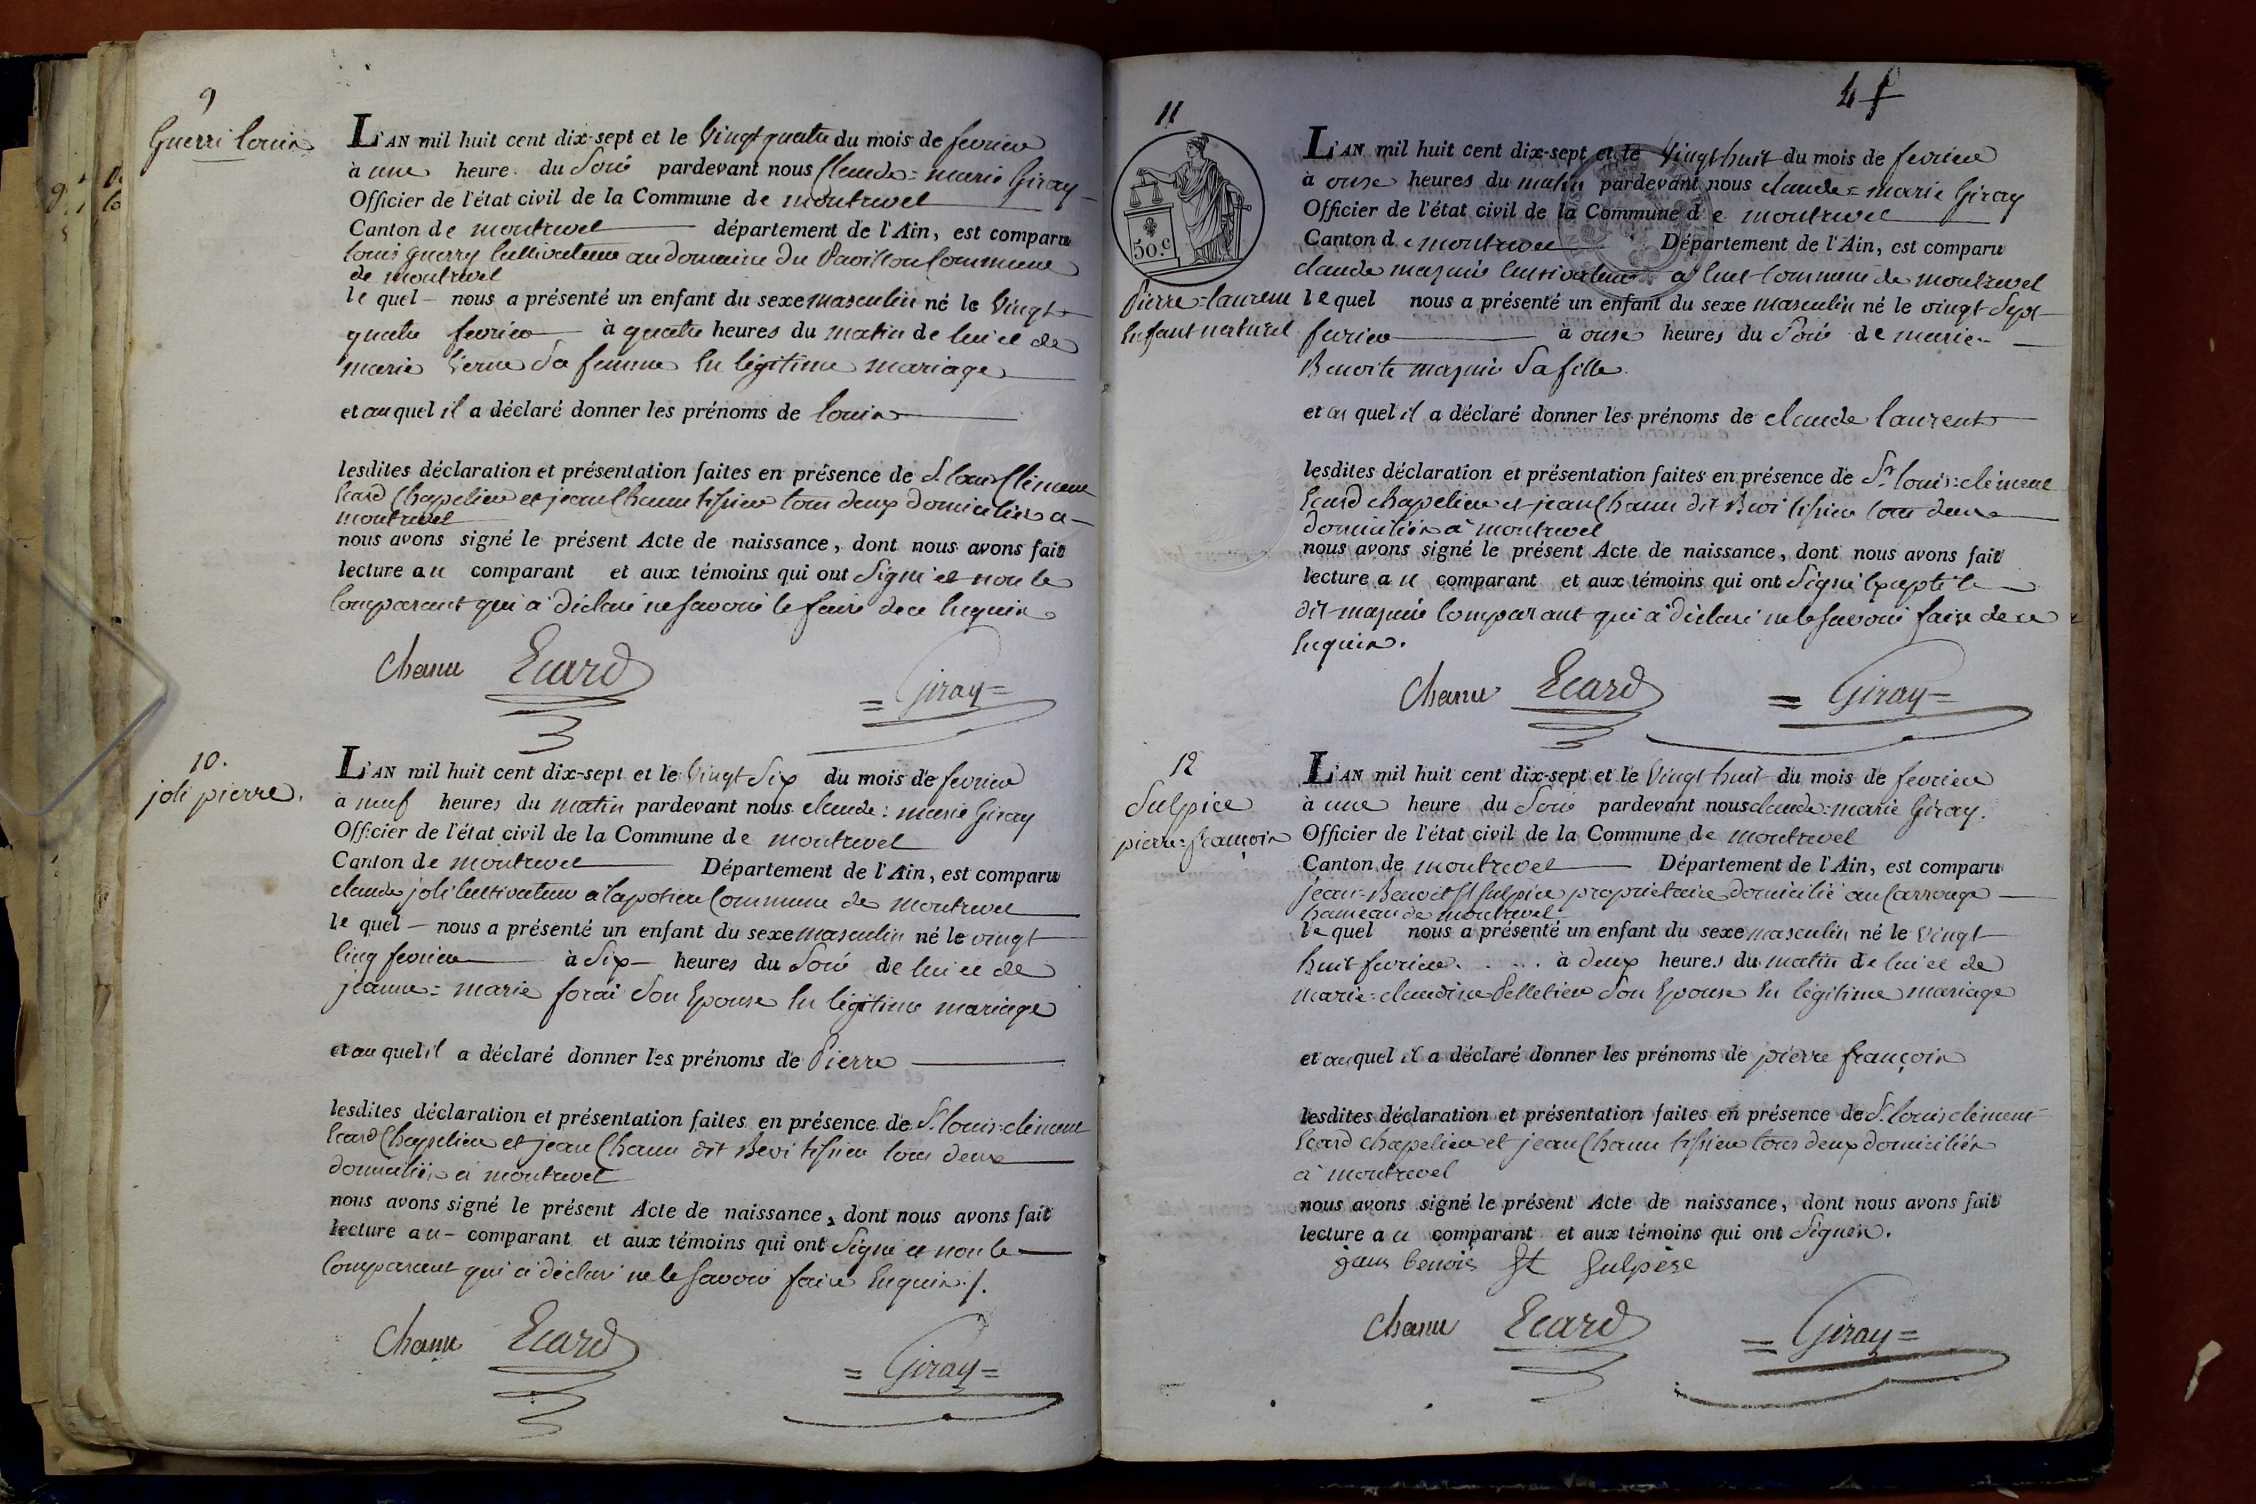 9
Guerri louis
L'AN mil huit cent dix-sept et le vingt quatre du mois de fevrier
à une heure du Soir pardevant nous Claude=marie Giray
Officier de l'état civil de la Commune de montrevel
Canton de montrevel département de l'Ain, est comparu
louis guerry Cultivateur au domaine du Pavillon Commune
de montrevel
le quel nous a présenté un enfant du sexe masculin né le vingt
quatre fevrier à quatre heures du matin de lui et de
marie verne Sa femme En légitime mariage
et au quel il a déclaré donner les prénoms de louis
lesdites déclaration et présentation faites en présence de Sr louis Clément
Ecard Chapelier et jean Chanu tissier tous deux domiciliés a
montrevel
nous avons signé le présent Acte de naissance, dont nous avons fait
lecture au comparant et aux témoins qui ont Signé et non le
Comparant qui a déclaré ne savoir le faire de ce Enquis
Chanu Ecard =Giray=
10.
joli pierre.
L'AN mil huit cent dix-sept et le vingt Six du mois de fevrier
à neuf heures du matin pardevant nous claude=marie Giray
Officier de l'état civil de la Commune de montrevel
Canton de montrevel Département de l'Ain, est comparu
claude joli Cultivateur a lapotiere Commune de montrevel
le quel nous a présenté un enfant du sexe masculin né le vingt
Cinq fevrier à Six heures du Soir de lui et de
jeanne=marie forai Son Epouse En légitime mariage
et au quel il a déclaré donner les prénoms de Pierre
lesdites déclaration et présentation faites en présence de Sr louis=clément
Ecard Chapelier et jean Chanu dit Bevi tissier tous deux
domiciliés à montrevel
nous avons signé le présent Acte de naissance, dont nous avons fait
lecture au comparant et aux témoins qui ont Signé et non le
Comparant qui a déclaré ne le Savoir faire Enquis./.
Chanu Ecard =Giray=
4
11
50.c
Pierre=laurent
Enfant naturel
L'AN mil huit cent dix-sept et le vingt huit du mois de fevrier
à onse heures du matin pardevant nous claude=marie Giray
Officier de l'état civil de la Commune de montrevel
Canton de montrevel Département de l'Ain, est comparu
claude Cultivateur a Cuet Commune de montrevel
le quel nous a présenté un enfant du sexe masculin né le vingt Sept
fevrier à onse heures du Soir de marie
Benoite Sa fille
et au quel il a déclaré donner les prénoms de claude laurent
lesdites déclaration et présentation faites en présence de Sr louis=clément
Ecard chapelier et jean Chanu dit Bevi tissier tous deux
domiciliés à montrevel
nous avons signé le présent Acte de naissance, dont nous avons fait
lecture au comparant et aux témoins qui ont Signé Excepté le
dit Comparant qui a déclaré ne le Savoir faire de ce
Enquis.
Chanu Ecard =Giray=
12
Sulpice
pierre=françois
L'AN mil huit cent dix-sept et le vingt huit du mois de fevrier
à une heure du Soir pardevant nous claude=marie Giray.
Officier de l'état civil de la Commune de montrevel
Canton de montrevel Département de l'Ain, est comparu
jean-Benoit St Sulpice proprietaire domicilié au Carrouge
hameau de montrevel
le quel nous a présenté un enfant du sexe masculin né le vingt
huit fevrier..... à deux heures du matin de lui et de
marie=claudine Pelletier Son Epouse En légitime mariage
et au quel il a déclaré donner les prénoms de pierre françois
lesdites déclaration et présentation faites en présence de Sr louis clément
Ecard chapelier et jean Chanu tissier tous deux domiciliés
à montrevel
nous avons signé le présent Acte de naissance, dont nous avons fait
lecture au comparant et aux témoins qui ont Signés.
jean benois St Sulpise
Chanu Ecard =Giray=